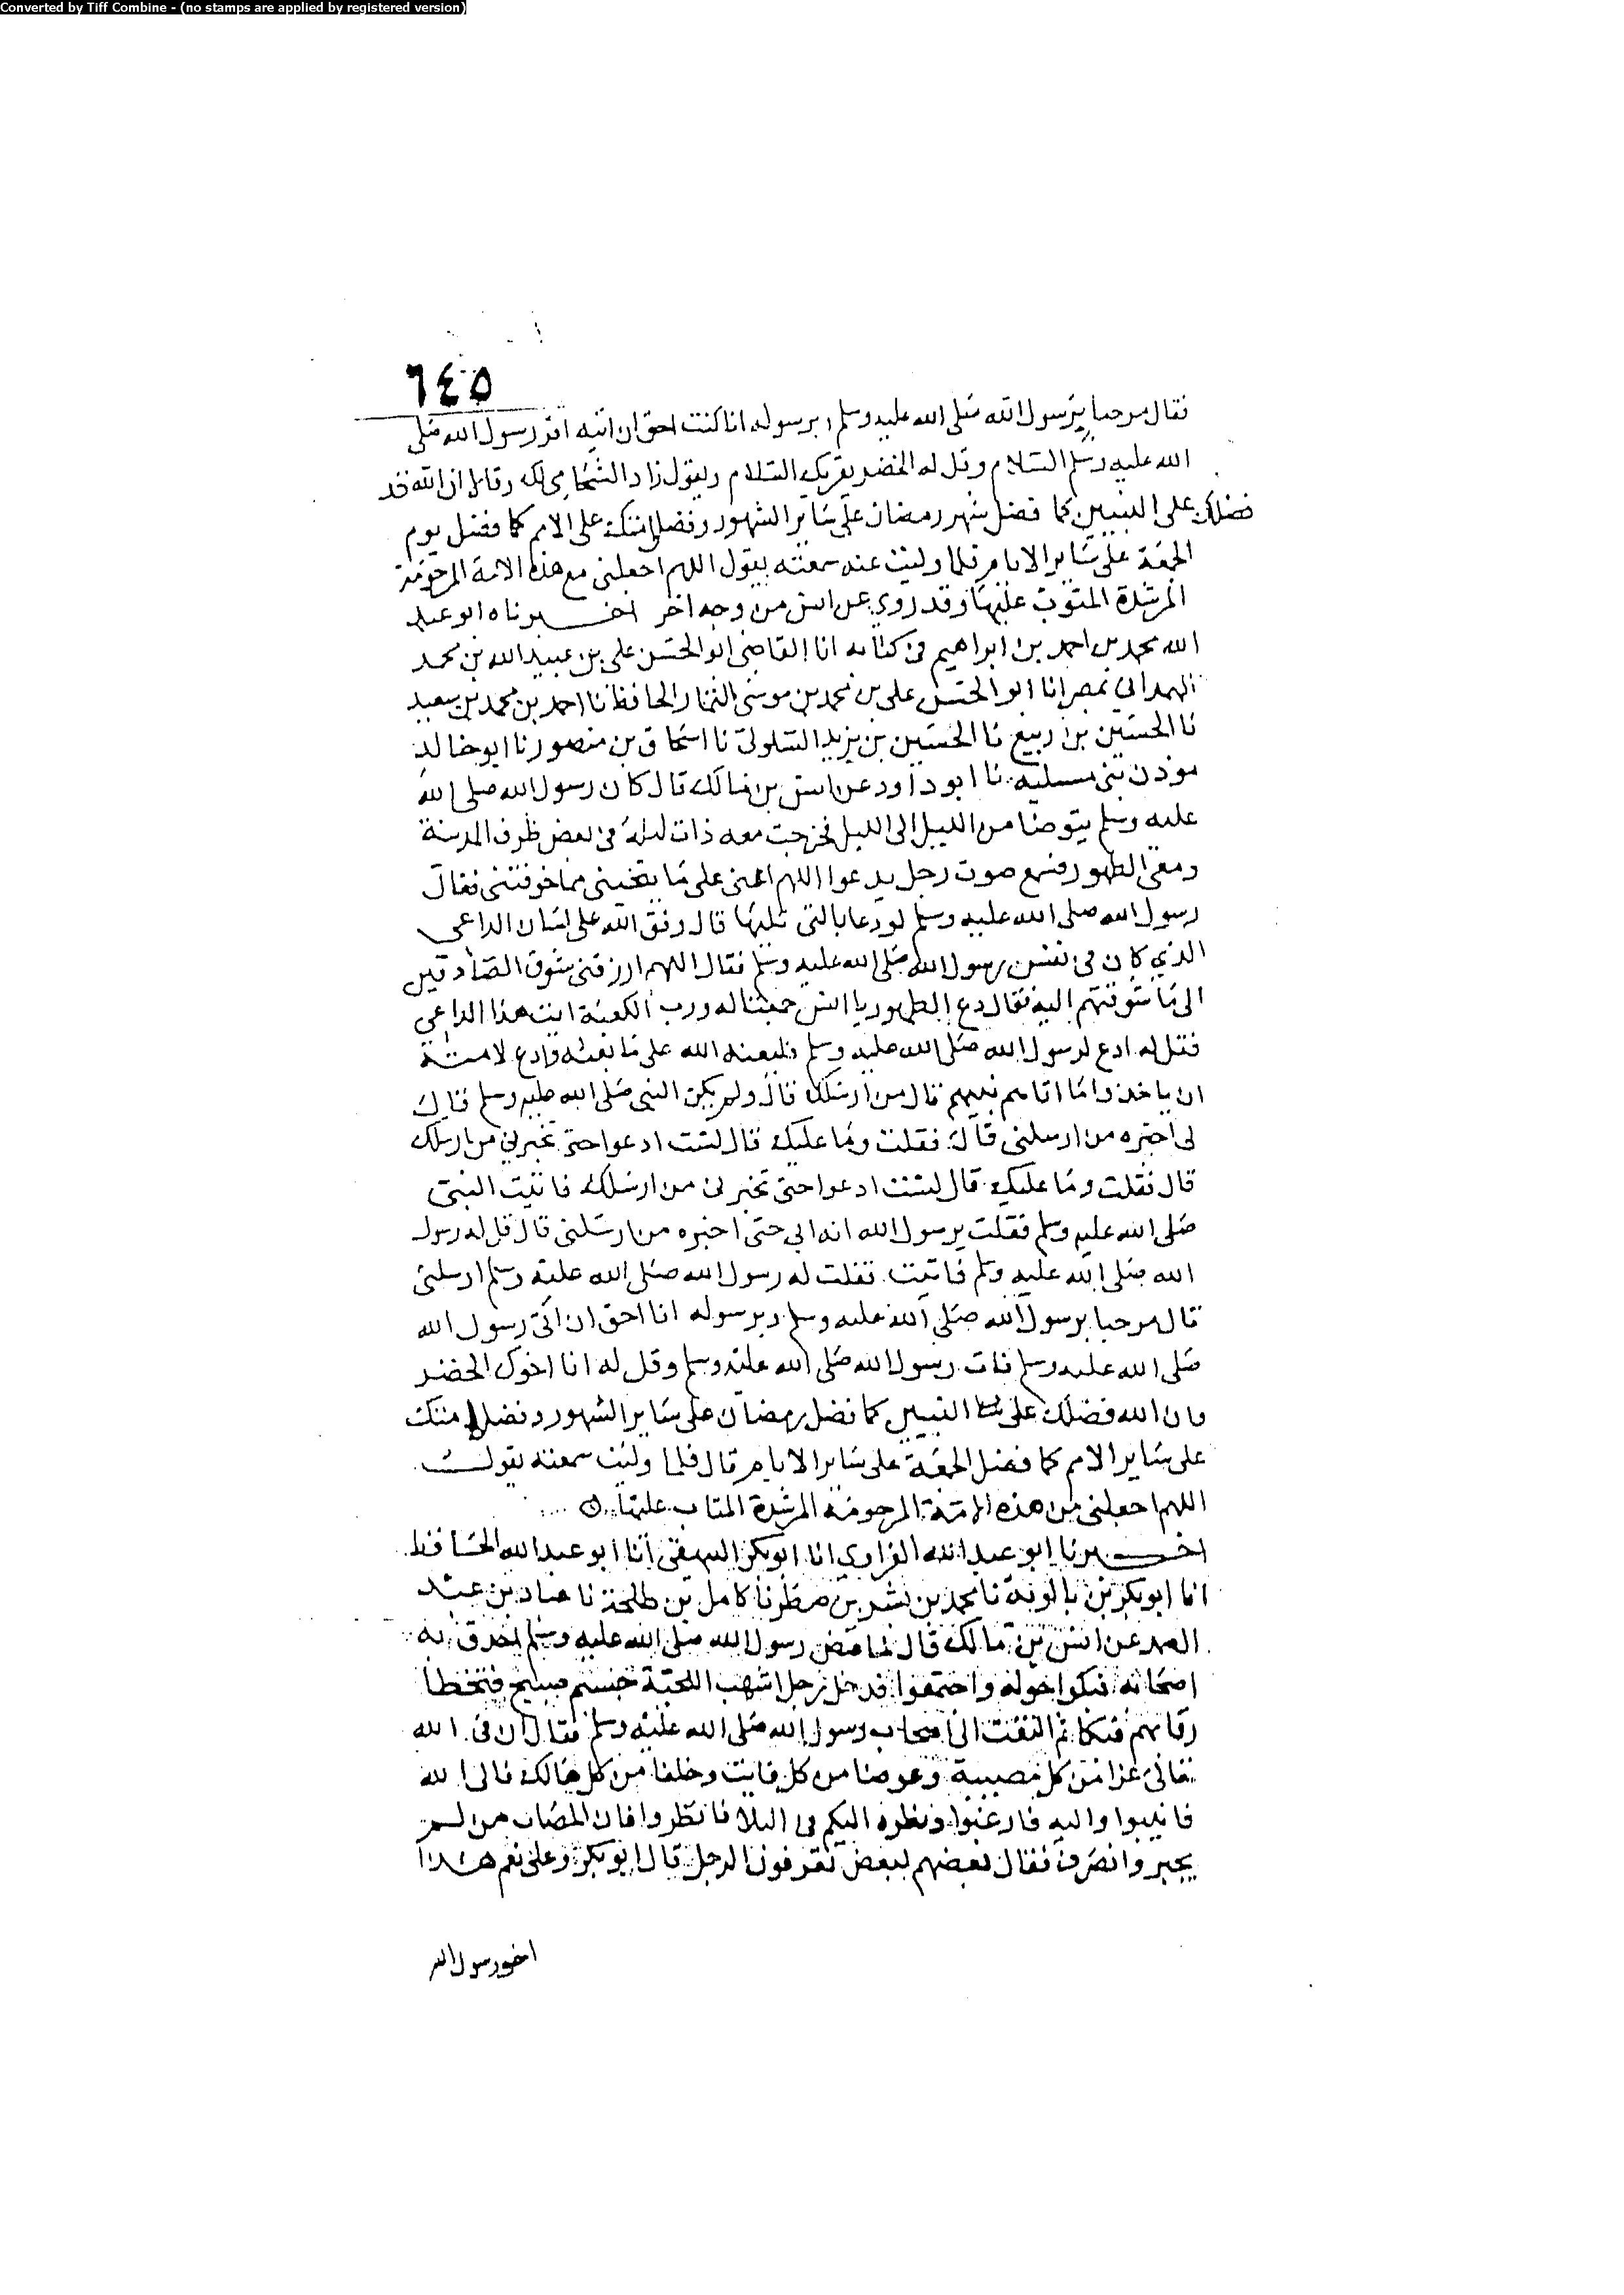 Converted by Tiff Combine - (no stamps are applied by registered version)
٦٤٥
فقال مرحبا برسول الله صلى الله عليه وسلم وبرسوله انا كنت احق ان اتيه اقر رسول الله صلى
الله عليه وسلم السلام وقل له الخضر يقريك السلام ويقول ان الله قد
فضلك على النبيين كما فضل شهر رمضان على ساير الشهور وفضل امتك على الامم كما فضل يوم
الجمعة على ساير الايام فلما وليت عنه سمعته يقول اللهم اجعلني مع هذه الامة المرحومة
المرشدة المتوب عليها وقد روي عن انس من وجه اخر اخبرناه ابو عبد
الله محمد بن احمد بن ابراهيم في كتابه انا القاضي ابو الحسن علي بن عبيد الله بن محمد
الهمداني بمصر انا ابو الحسن علي بن محمد بن موسى التمار الحافظ نا احمد بن محمد بن سعيد
نا الحسين بن ربيع نا الحسين بن يزيد السلولي نا اسحاق بن منصور نا ابو خالد
موذن بني مسلية نا ابو داود عن انس بن مالك قال كان رسول الله صلى الله
عليه وسلم يتوضا من الليل الى الليل فخرجت معه ذات ليلة في بعض طرق المدينة
ومعي الطهور فسمع صوت رجل يدعوا اللهم اعني على ما ينجيني مما خوفتني فقال
رسول الله صلى الله عليه وسلم لو دعا بالتي تليها قال وفق الله على لسان الداعي
الذي كان في نفس رسول الله صلى الله عليه وسلم فقال اللهم ارزقني شوق الصادقين
الى ما شوقتهم اليه فقال دع الطهور يا انس حمعتا له ورب الكعبة ايت هذا الداعي
فقل له ادع لرسول الله صلى الله عليه وسلم فليعنه الله على ما بعثه وادع لامته
ان ياخذوا ما اتاهم نبيهم قال من ارسلك قال ولم يكن النبي صلى الله عليه وسلم قال
لي اخبره من ارسلني قال فقلت وما عليك قال لست ادعوا حتى تخبرني من ارسلك
قال فقلت وما عليك قال لست ادعوا حتى تخبرني من ارسلك فاتيت النبي
صلى الله عليه وسلم فقلت يرسول الله انه ابى حتى اخبره من ارسلني قال قل له رسول
الله صلى الله عليه وسلم فاتيت فقلت له رسول الله صلى الله عليه وسلم ارسلني
قال مرحبا برسول الله صلى الله عليه وسلم وبرسوله انا احق ان اتي رسول الله
صلى الله عليه وسلم فات رسول الله صلى الله عليه وسلم وقل له انا اخوك الخضر
وان الله فضلك على النبيين كما فضل رمضان على ساير الشهور وفضل امتك
على ساير الامم كما فضل الجمعة على ساير الايام قال فلما وليت سمعته يقول
اللهم اجعلني من هذه الامة المرحومة المرشدة المتاب عليها
اخبرنا ابو عبد الله الفراوي انا ابو بكر البيهقي انا ابو عبد الله الحافظ
انا ابو بكر بن بالويه نا محمد بن بشر بن مطر نا كامل بن طلحة نا عباد بن عبد
الصمد عن انس بن مالك قال لما قبض رسول الله صلى الله عليه وسلم احدق به
اصحابه فبكوا حوله واجتمعوا فدخل رجل اشهب اللحية جسيم صبيح فتخطا
رقابهم فبكا ثم التفت الى اصحاب رسول الله صلى الله عليه وسلم فقال ان في الله
تعالى عزا من كل مصيبة وعوضا من كل فايت وخلفا من كل هالك فالى الله
فانيبوا واليه فارغبوا ونظره اليكم في البلا فانظروا فان المصاب من لم
يجبر وانصرف فقال بعضهم لبعض تعرفون الرجل قال ابو بكر وعلي نعم هذا
اخو رسول الله